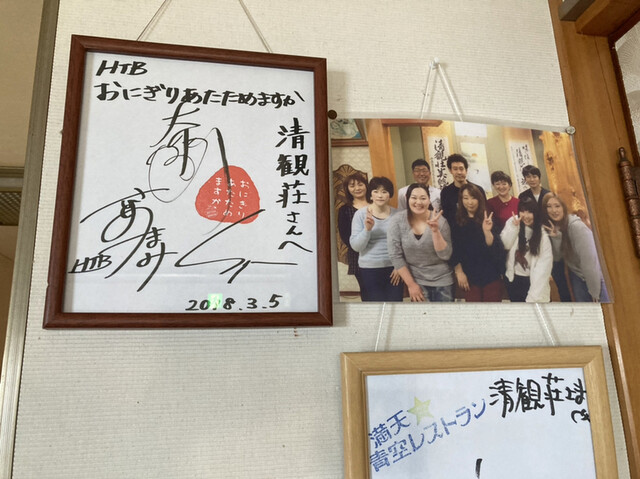 HTB
おにぎりあたためますか
清観荘さんへ
おにぎり
あたため
ますか
HTB
2018.3.5
満天☆
青空レストラン
清観荘さま